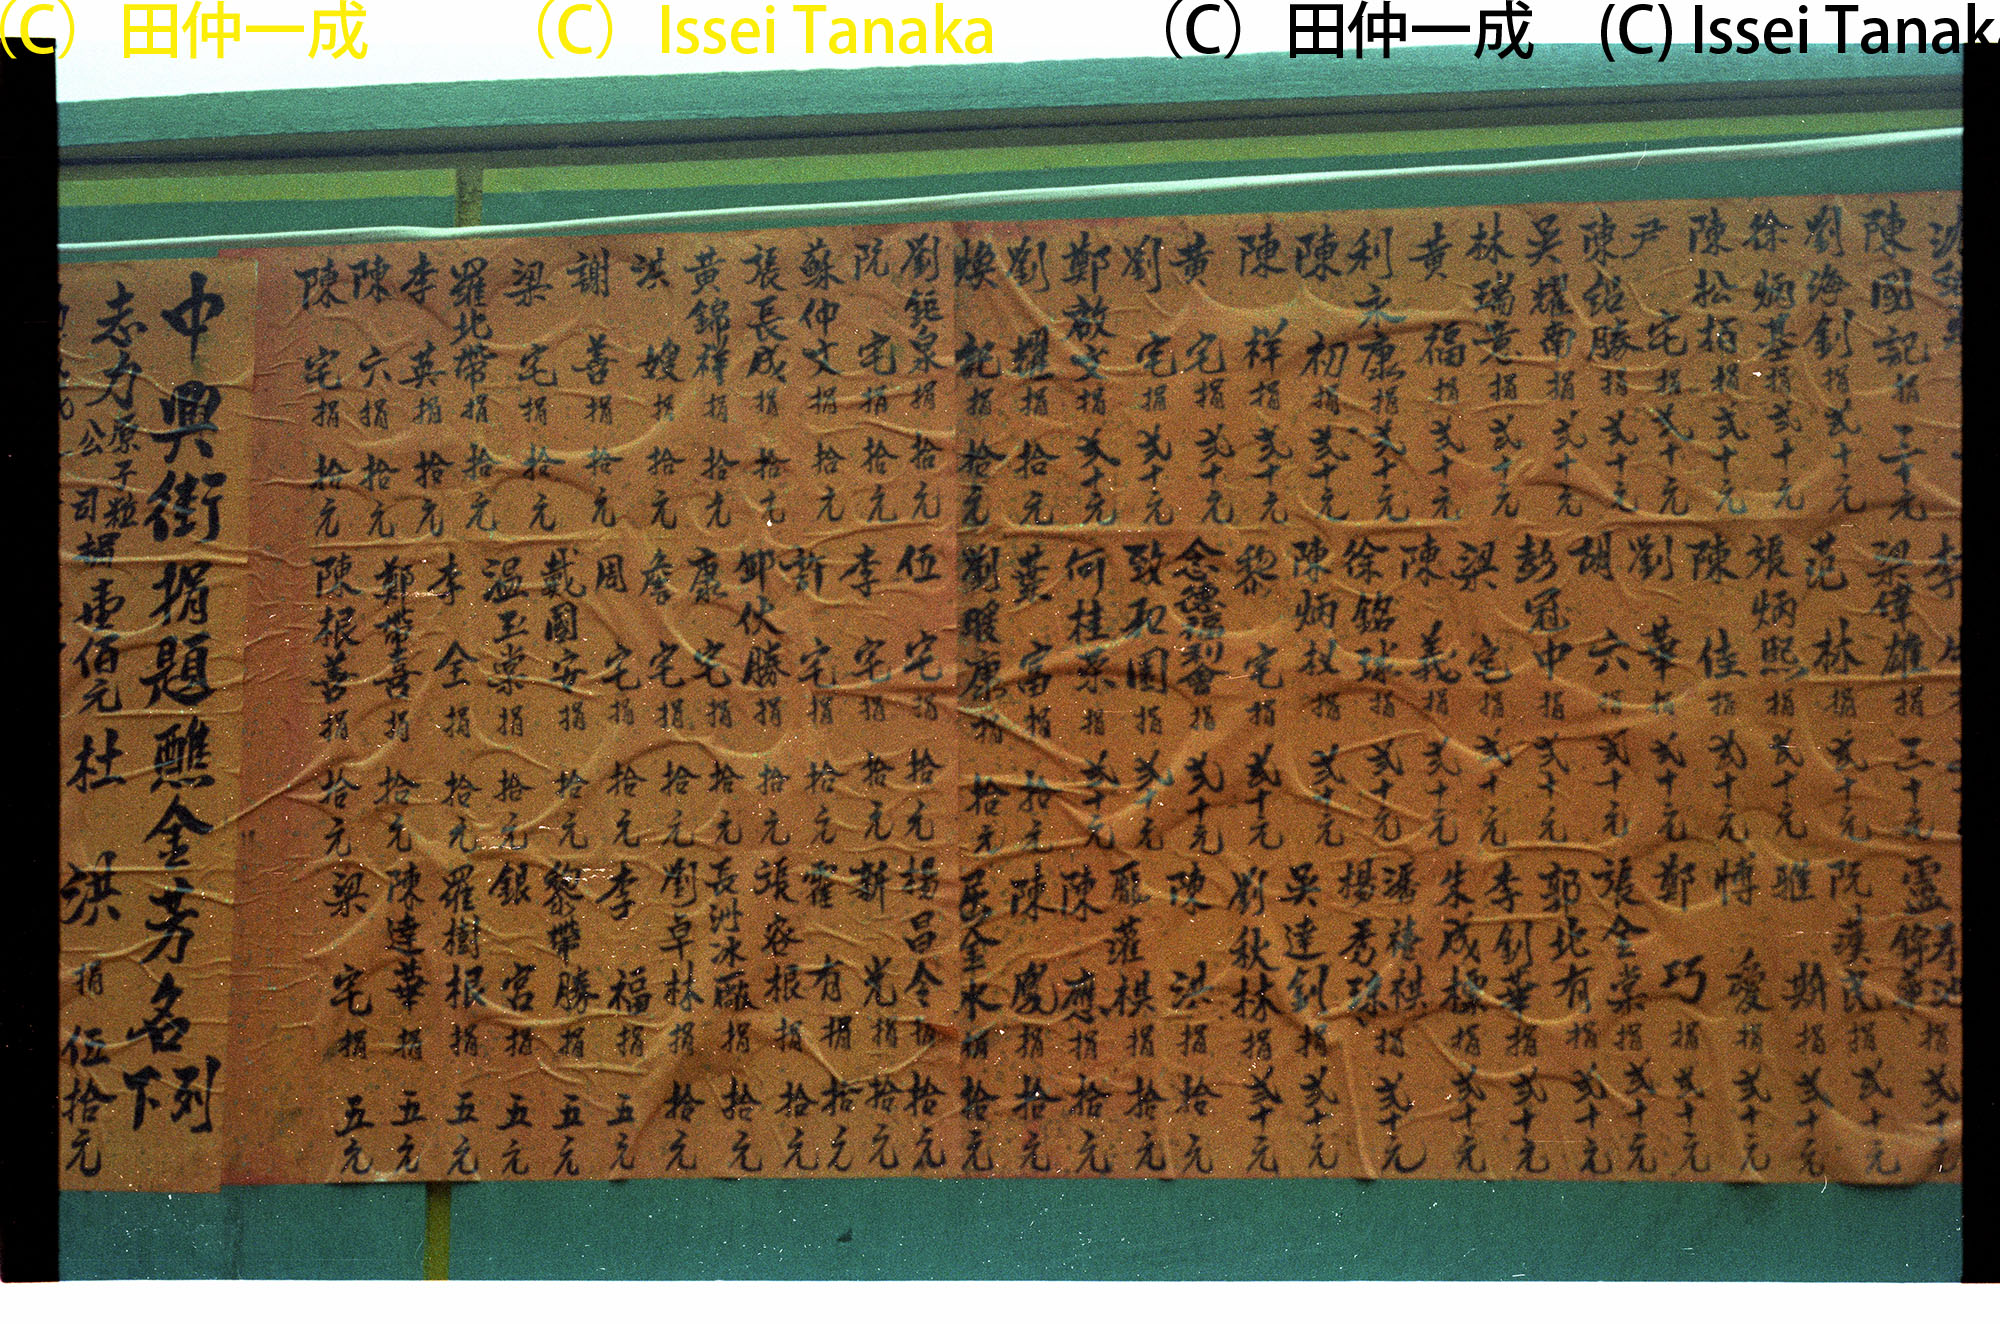 （C）田仲一成　（C）Issei Tanaka　（C）田仲一成　(C) Issei Tanak
陳國記捐三十元
劉海釗捐弍十元
徐炳基捐弍十元
陳松栢捐弍十元
尹宅捐弍十元
陳紹勝捐弍十元
吳耀南捐弍十元
林瑞意捐弍十元
黃福捐弍十元
利永康捐弍十元
陳初捐弍十元
陳祥捐弍十元
黃宅捐弍十元
劉宅捐弍十元
鄭啟文捐弍十元
劉耀捐拾元
煥記捐拾元
劉鉅泉捐拾元
阮宅捐拾元
蘇仲文捐拾元
張長成捐拾元
黃錦祥捐拾元
洪嫂捐拾元
謝善捐拾元
梁宅捐拾元
羅北帶捐拾元
李英捐拾元
陳六捐拾元
陳宅捐拾元
梁偉雄捐三十元
范林捐弍十元
張炳熙弍十元
陳佳捐弍十元
劉華捐弍十元
胡六捐弍十元
彭冠中捐弍十元
梁宅捐弍十元
陳義捐弍十元
徐銘球捐弍十元
陳炳权捐弍十元
黎宅捐弍十元
念德福利會捐弍十元
致和園捐弍十元
何桂荣捐弍十元
葉富捐拾元
劉暖康捐拾元
伍宅捐拾元
李宅捐拾元
許宅捐拾元
鄧伙勝捐拾元
康宅捐拾元
詹宅捐拾元
周宅捐拾元
戴國安捐拾元
溫玉棠捐拾元
李全捐拾元
鄭帶喜捐拾元
陳根善捐拾元
靈錦華捐弍十元
阮漢民捐弍十元
雅斯弍十元
博愛捐弍十元
鄭巧捐弍十元
張全棠捐弍十元
郭北有捐弍十元
李釗華捐弍十元
朱成標捐弍十元
潘禧祺
楊秀珠捐弍十元
吳達釗捐弍十元
劉秋林捐弍十元
陳洪捐拾元
龐蓮棋捐拾元
陳應捐拾元
陳慶捐拾元
屈金水捐拾元
楊昌令捐拾元
新光捐拾元
霍有捐拾元
張容根捐拾元
長洲冰廠捐拾元
劉卓林捐拾元
李福捐五元
黎帶勝捐五元
銀宮捐五元
羅樹根捐五元
陳達華捐五元
梁宅捐五元
中興街捐題醮金芳名列下
志力原子粒公司捐壹佰元
杜洪捐伍拾元